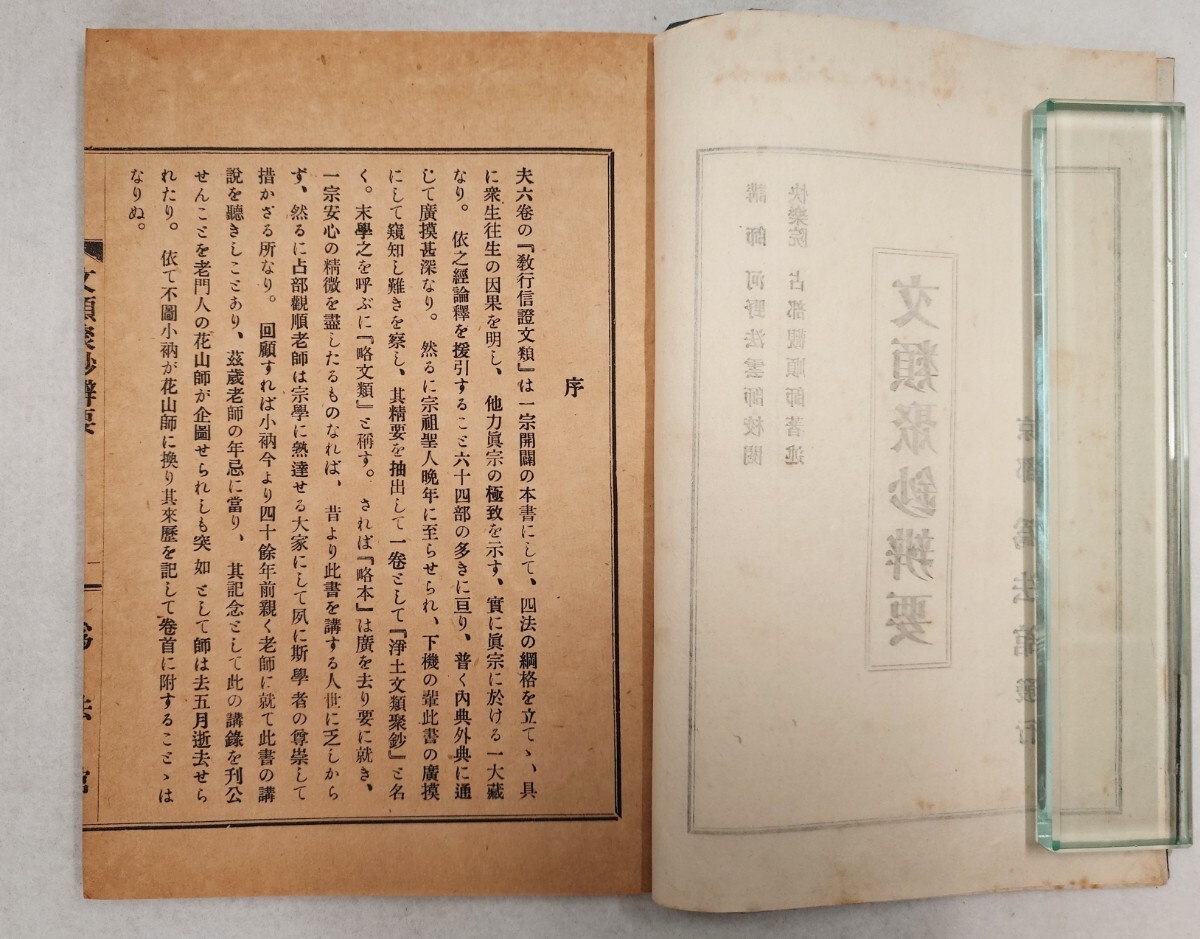 快樂院 占部觀順師著述
講師 河野法雲師校閱
文類聚鈔辨要
京都 爲法館藏行
序
夫六卷の『敎行信證文類』は一宗開闢の本書にして、四法の綱格を立てゝ、具
に衆生往生の因果を明し、他力眞宗の極致を示す、實に眞宗に於ける一大藏
なり。依之經論釋を援引すること六十四部の多きに亘り、普く內典外典に通
じて廣摸甚深なり。然るに宗祖聖人晚年に至らせられ、下機の輩此書の廣摸
にして窺知し難きを察し、其精要を抽出して一卷として『淨土文類聚鈔』と名
く。末學之を呼ぶに『略文類』と稱す。されば『略本』は廣を去り要に就き、
一宗安心の精微を盡したるものなれば、昔より此書を講する人世に乏しから
ず、然るに占部觀順老師は宗學に熟達せる大家にして夙に斯學者の尊崇して
措かざる所なり。回顧すれば小衲今より四十餘年前親く老師に就て此書の講
說を聽きしことあり、茲歲老師の年忌に當り、其記念として此の講錄を刊公
せんことを老門人の花山師が企圖せられしも突如として師は去五月逝去せら
れたり。依て不圖小衲が花山師に換り其來歷を記して卷首に附することゝは
なりぬ。
文類聚鈔辨要
一
爲法館